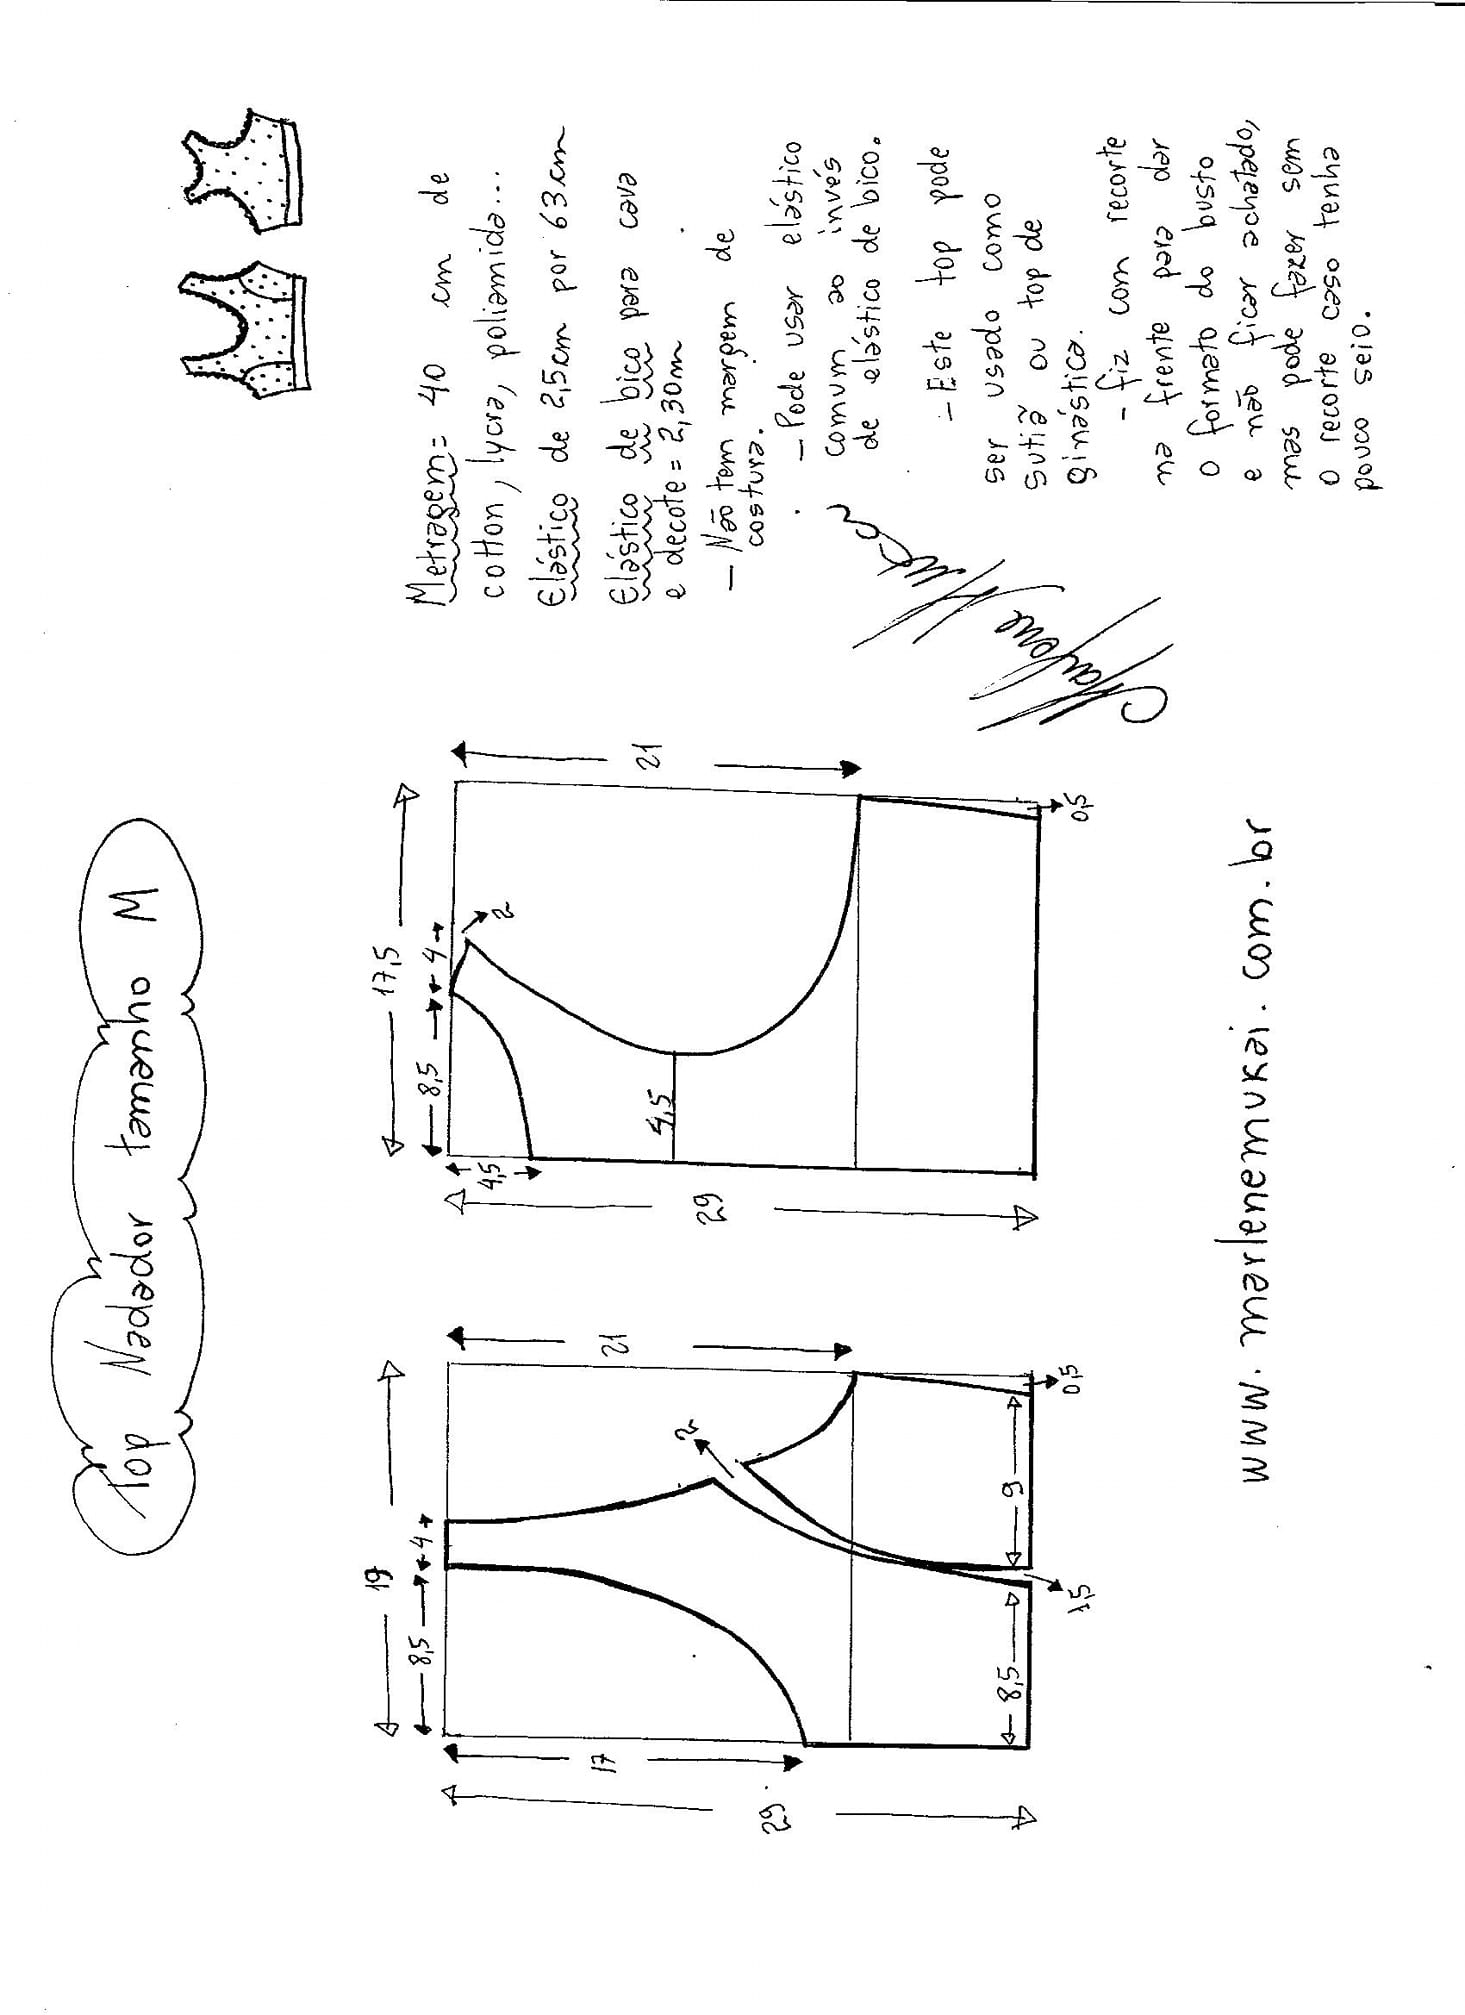 Top Nadador tamanho M
Metragem= 40 cm de
cotton, lycra, poliamida...
Elástico de 2,5cm por 63cm
Elástico de bico para cava
e decote = 2,30m
- Não tem margem de
costura.
- Pode usar elástico
comum ao invés
de elástico de bico.
- Este top pode
ser usado como
sutiã ou top de
ginástica.
- fiz com recorte
na frente para dar
o formato do busto
e não ficar achatado,
mas pode fazer sem
o recorte caso tenha
pouco seio.
Marlene Mukai
19
8,5
4
21
2
17
29
9
8,5
0,5
1,5
17,5
8,5
4
2
21
4,5
4,5
29
0,5
www.marlenemukai.com.br